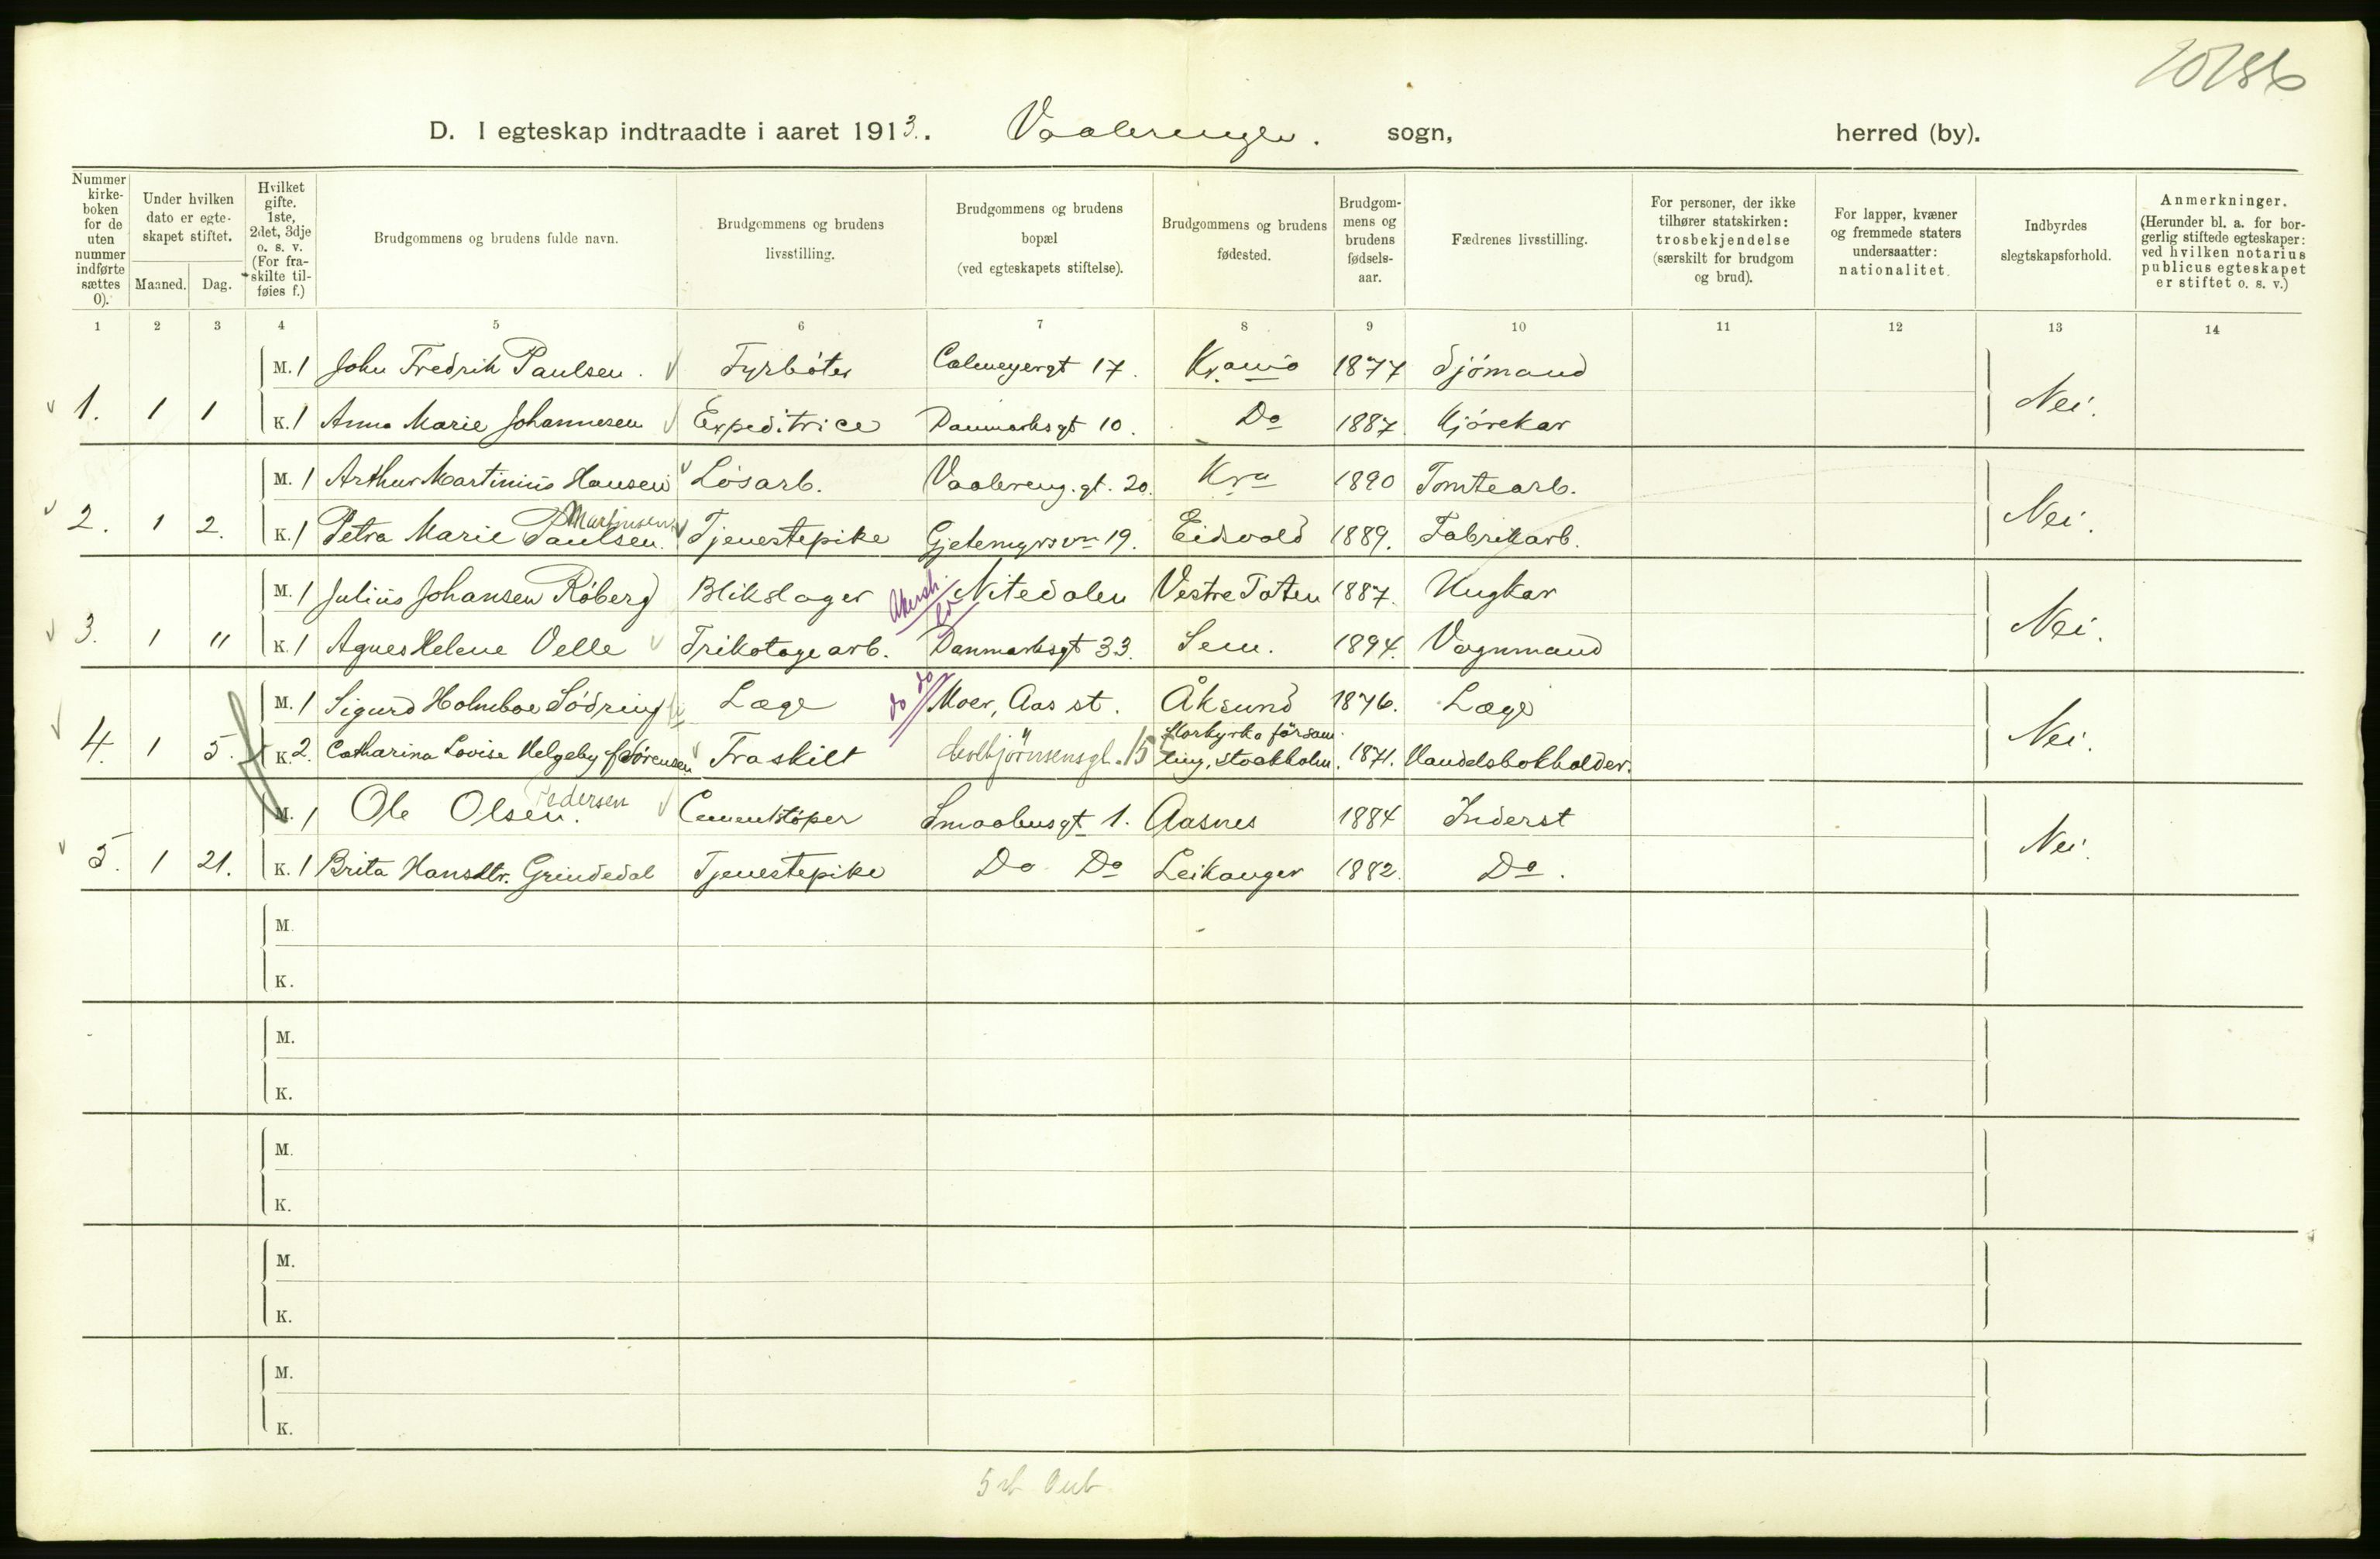 D. I egteskap indtraadte i aaret 1913. Vaalerengen. sogn, herred (by).
Nummer kirke-boken for de uten nummer indførte sættes 0).
Under hvilken dato er egte-skapet stiftet.
Maaned. Dag.
Hvilket gifte. 1ste, 2det, 3dje o. s. v. (For fra-skilte til-føies f.)
Brudgommens og brudens fulde navn.
Brudgommens og brudens livsstilling.
Brudgommens og brudens bopæl (ved egteskapets stiftelse).
Brudgommens og brudens fødested.
Brudgom-mens og brudens fødsels-aar.
Fædrenes livsstilling.
For personer, der ikke tilhører statskirken: trosbekjendelse (særskilt for brudgom og brud).
For lapper, kvæner og fremmede staters undersaatter: nationalitet.
Indbyrdes slegtskapsforhold.
Anmerkninger. (Herunder bl. a. for bor-gerlig stiftede egteskaper: ved hvilken notarius publicus egteskapet er stiftet o. s. v.)
1 2 3 4 5 6 7 8 9 10 11 12 13 14
M. 1 John Fredrik Paulsen. Fyrbøter Calmeyergt 17. 1877 Sjømand
1. 1 1 K. 1 Anna Marie Johannesen Expeditrice Danmarksgt 10. Do 1887 Kjørekar Nei.
M. 1 Arthur Martinius Hansen Løsarb. Vaalereng.gt. 20. Kra 1890 Tomtearb.
Martinsen
2. 1 2. K. 1 Petra Marie Paulsen. Tjenestepike Gjetemyrsvn 19. Eidsvold 1889. Fabrikarb. Nei.
M. 1 Julius Johansen Røberg Blikslager Akersh. Nitedalen Vestre Toten 1887. Hugkar
3. 1 " K. 1 Agnes Helene Oelle Trikotagearb. Danmarksgt 33. Sem. 1894. Vognmand Nei.
M. 1 Sigurd Holmboe Södring Læge do do Moer, Aas st. Åksund 1876. Læge
4. 1 5. K. 2. Catharina Lovise Helgeby f Sörensen Fraskilt 15 Storkyrko försam ling, Stockholm. 1871. Handelsbokholder. Nei.
Pedersen
M. 1 Ole Olsen. Cementstøper Smaalensgt 1. Aasnes 1884 Inderst
5. 1 21. K. 1 Brita Hansdtr. Grindedal Tjenestepike Do Do Leikanger 1882. Do. Nei.
M.
K.
M.
K.
M.
K.
M.
K.
M.
K.